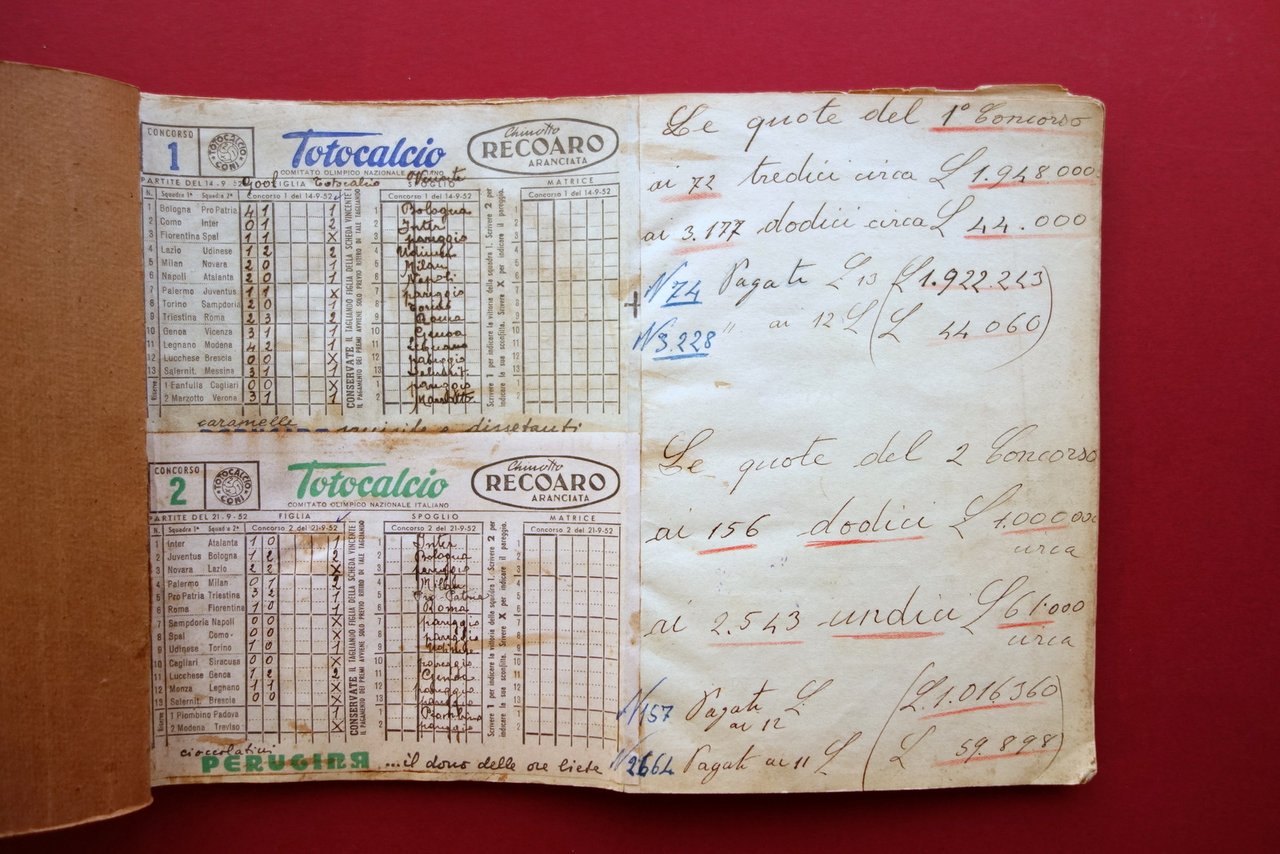 CONCORSO
1
TOTOCALCIO CONI
Totocalcio
COMITATO OLIMPICO NAZIONALE
Chinotto
RECOARO
ARANCIATA
PARTITE DEL 14-9-52 Gool FIGLIA Totocalcio SPOGLIO MATRICE
N. Squadra 1ª Squadra 2ª Concorso 1 del 14-9-52 Concorso 1 del 14-9-52 Concorso 1 del 14-9-52
1 Bologna Pro Patria 4 1 1 1 Bologna 1
2 Como Inter 0 1 2 2 Inter 2
3 Fiorentina Spal 1 1 X 3 pareggio 3
4 Lazio Udinese 1 2 2 4 Udinese 4
5 Milan Novara 2 0 1 5 Milan 5
6 Napoli Atalanta 2 0 1 6 Napoli 6
7 Palermo Juventus 1 1 X 7 pareggio 7
8 Torino Sampdoria 1 8 8
9 Triestina Roma 2 3 2 9 Roma 9
10 Genoa Vicenza 3 1 1 10 Genoa 10
11 Legnano Modena 4 2 1 11 Legnano 11
12 Lucchese Brescia 0 0 X 12 pareggio 12
13 Salernit. Messina 3 1 1 13 Salernit. 13
Riserve
1 Fanfulla Cagliari 0 0 X 1 pareggio 1
2 Marzotto Verona 3 1 1 2 Marzotto 2
CONSERVATE IL TAGLIANDO FIGLIA DELLA SCHEDA VINCENTE
IL PAGAMENTO DEI PREMI AVVIENE SOLO PREVIO RITIRO DI TALE TAGLIANDO
Scrivere 1 per indicare la vittoria della squadra 1. Scrivere 2 per indicare la sua sconfitta. Scrivere X per indicare il pareggio.
caramelle
squisite e dissetanti
CONCORSO
2
TOTOCALCIO CONI
Totocalcio
COMITATO OLIMPICO NAZIONALE ITALIANO
Chinotto
RECOARO
ARANCIATA
PARTITE DEL 21-9-52 FIGLIA SPOGLIO MATRICE
N. Squadra 1ª Squadra 2ª Concorso 2 del 21-9-52 Concorso 2 del 21-9-52 Concorso 2 del 21-9-52
1 Inter Atalanta 1 0 1 1 Inter 1
2 Juventus Bologna 1 2 2 2 Bologna 2
3 Novara Lazio 2 2 X 3 pareggio 3
4 Palermo Milan 0 1 2 4 Milan 4
5 Pro Patria Triestina 3 2 1 5 Pro Patria 5
6 Roma Fiorentina 1 0 1 6 Roma 6
7 Sampdoria Napoli 0 0 X 7 pareggio 7
8 Spal Como 0 0 X 8 pareggio 8
9 Udinese Torino 1 0 1 9 Udinese 9
10 Cagliari Siracusa 0 0 X 10 pareggio 10
11 Lucchese Genoa 1 2 2 11 Genoa 11
12 Monza Legnano 12 pareggio 12
13 Salernit. Brescia 13 pareggio 13
Riserve
1 Piombino Padova 1 1 Piombino 1
2 Modena Treviso X 2 pareggio 2
CONSERVATE IL TAGLIANDO FIGLIA DELLA SCHEDA VINCENTE
IL PAGAMENTO DEI PREMI AVVIENE SOLO PREVIO RITIRO DI TALE TAGLIANDO
Scrivere 1 per indicare la vittoria della squadra 1. Scrivere 2 per indicare la sua sconfitta. Scrivere X per indicare il pareggio.
cioccolatini
PERUGINA ...il dono delle ore liete
Le quote del 1° Concorso
ai 72 tredici circa L 1.948 000
ai 3.177 dodici circa L 44.000
N 74 Pagate L 13 (L 1.922.243)
N 3.228 " ai 12 L (L 44 060)
Le quote del 2 Concorso
ai 156 dodici L 1.000 000
circa
ai 2.543 undici L 61.000
circa
N 157 Pagate L (L. 1.016360)
ai 12
N 2664 Pagati ai 11 L (L 59.898)